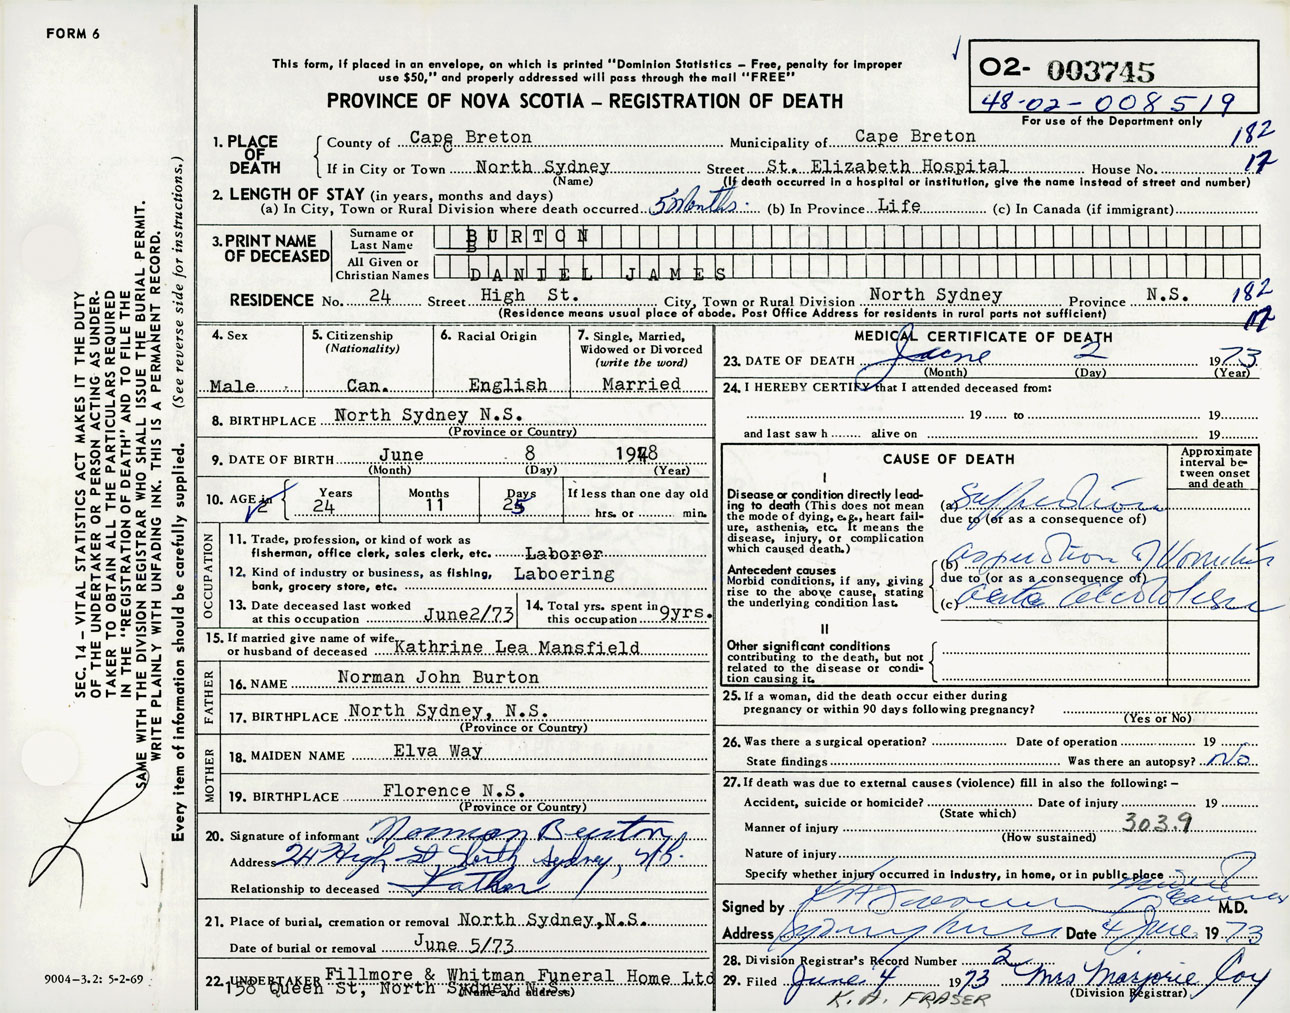 FORM 6
This form, if placed in an envelope, on which is printed "Dominion Statistics – Free, penalty for improper
use $50," and properly addressed will pass through the mail "FREE"
PROVINCE OF NOVA SCOTIA – REGISTRATION OF DEATH
02- 003745
48-02-008519
For use of the Department only
1. PLACE OF DEATH
County of Cape Breton Municipality of Cape Breton 182
If in City or Town North Sydney Street St. Elizabeth Hospital House No. 17
(Name) (If death occurred in a hospital or institution, give the name instead of street and number)
2. LENGTH OF STAY (in years, months and days)
(a) In City, Town or Rural Division where death occurred 5 Months. (b) In Province Life (c) In Canada (if immigrant)
3. PRINT NAME OF DECEASED
Surname or Last Name BURTON
All Given or Christian Names DANIEL JAMES
RESIDENCE No. 24 Street High St. City, Town or Rural Division North Sydney Province N.S. 182
(Residence means usual place of abode. Post Office Address for residents in rural parts not sufficient) 17
4. Sex Male
5. Citizenship (Nationality) Can.
6. Racial Origin English
7. Single, Married, Widowed or Divorced (write the word) Married
8. BIRTHPLACE North Sydney N.S.
(Province or Country)
9. DATE OF BIRTH June 8 1948
(Month) (Day) (Year)
10. AGE in Years 24 Months 11 Days 25 If less than one day old hrs. or min.
OCCUPATION
11. Trade, profession, or kind of work as
fisherman, office clerk, sales clerk, etc. Laborer
12. Kind of industry or business, as fishing, Laboering
bank, grocery store, etc.
13. Date deceased last worked
at this occupation June2/73
14. Total yrs. spent in
this occupation 9yrs.
15. If married give name of wife
or husband of deceased Kathrine Lea Mansfield
FATHER
16. NAME Norman John Burton
17. BIRTHPLACE North Sydney, N.S.
(Province or Country)
MOTHER
18. MAIDEN NAME Elva Way
19. BIRTHPLACE Florence N.S.
(Province or Country)
20. Signature of informant Norman Burton
Address 24 High St, North Sydney, N.S.
Relationship to deceased Father
21. Place of burial, cremation or removal North Sydney,N.S.
Date of burial or removal June 5/73
22. UNDERTAKER Fillmore & Whitman Funeral Home Ltd
158 Queen St, North Sydney N.S.
(Name and address)
MEDICAL CERTIFICATE OF DEATH
23. DATE OF DEATH June 2 1973
(Month) (Day) (Year)
24. I HEREBY CERTIFY that I attended deceased from:
19 to 19
and last saw h alive on 19
CAUSE OF DEATH
Approximate interval between onset and death
I
Disease or condition directly lead-
ing to death (This does not mean
the mode of dying, e.g., heart fail-
ure, asthenia, etc. It means the
disease, injury, or complication
which caused death.)
(a) Suffocation
due to (or as a consequence of)
Antecedent causes
Morbid conditions, if any, giving
rise to the above cause, stating
the underlying condition last.
(b) aspiration of Vomitus
due to (or as a consequence of)
(c) acute alcoholism
II
Other significant conditions
contributing to the death, but not
related to the disease or condi-
tion causing it.
25. If a woman, did the death occur either during
pregnancy or within 90 days following pregnancy?
(Yes or No)
26. Was there a surgical operation? Date of operation 19
State findings Was there an autopsy? No
27. If death was due to external causes (violence) fill in also the following: –
Accident, suicide or homicide? Date of injury 19
(State which)
Manner of injury 303.9
(How sustained)
Nature of injury
Specify whether injury occurred in industry, in home, or in public place
Signed by Medical Examiner M.D.
Address Sydney Mines Date 4 June 1973
28. Division Registrar's Record Number 2
29. Filed June 4 1973 Mrs Marjorie Coy
(Division Registrar)
K. A. FRASER
SEC. 14 – VITAL STATISTICS ACT MAKES IT THE DUTY
OF THE UNDERTAKER OR PERSON ACTING AS UNDER-
TAKER TO OBTAIN ALL THE PARTICULARS REQUIRED
IN THE "REGISTRATION OF DEATH" AND TO FILE THE
SAME WITH THE DIVISION REGISTRAR WHO SHALL ISSUE THE BURIAL PERMIT.
WRITE PLAINLY WITH UNFADING INK. THIS IS A PERMANENT RECORD.
Every item of information should be carefully supplied. (See reverse side for instructions.)
9004-3.2: 5-2-69